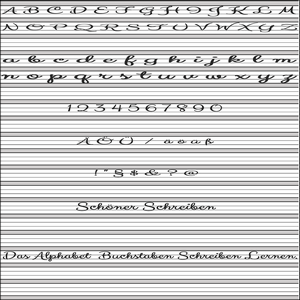 A B C D E F G H I J K L M
N O P Q R S T U V W X Y Z
a b c d e f g h i j k l m
n o p q r s t u v w x y z
1 2 3 4 5 6 7 8 9 0
Ä Ö Ü / ä ö ü ß
! " § $ & ? @
Schöner Schreiben
Das Alphabet Buchstaben Schreiben Lernen.